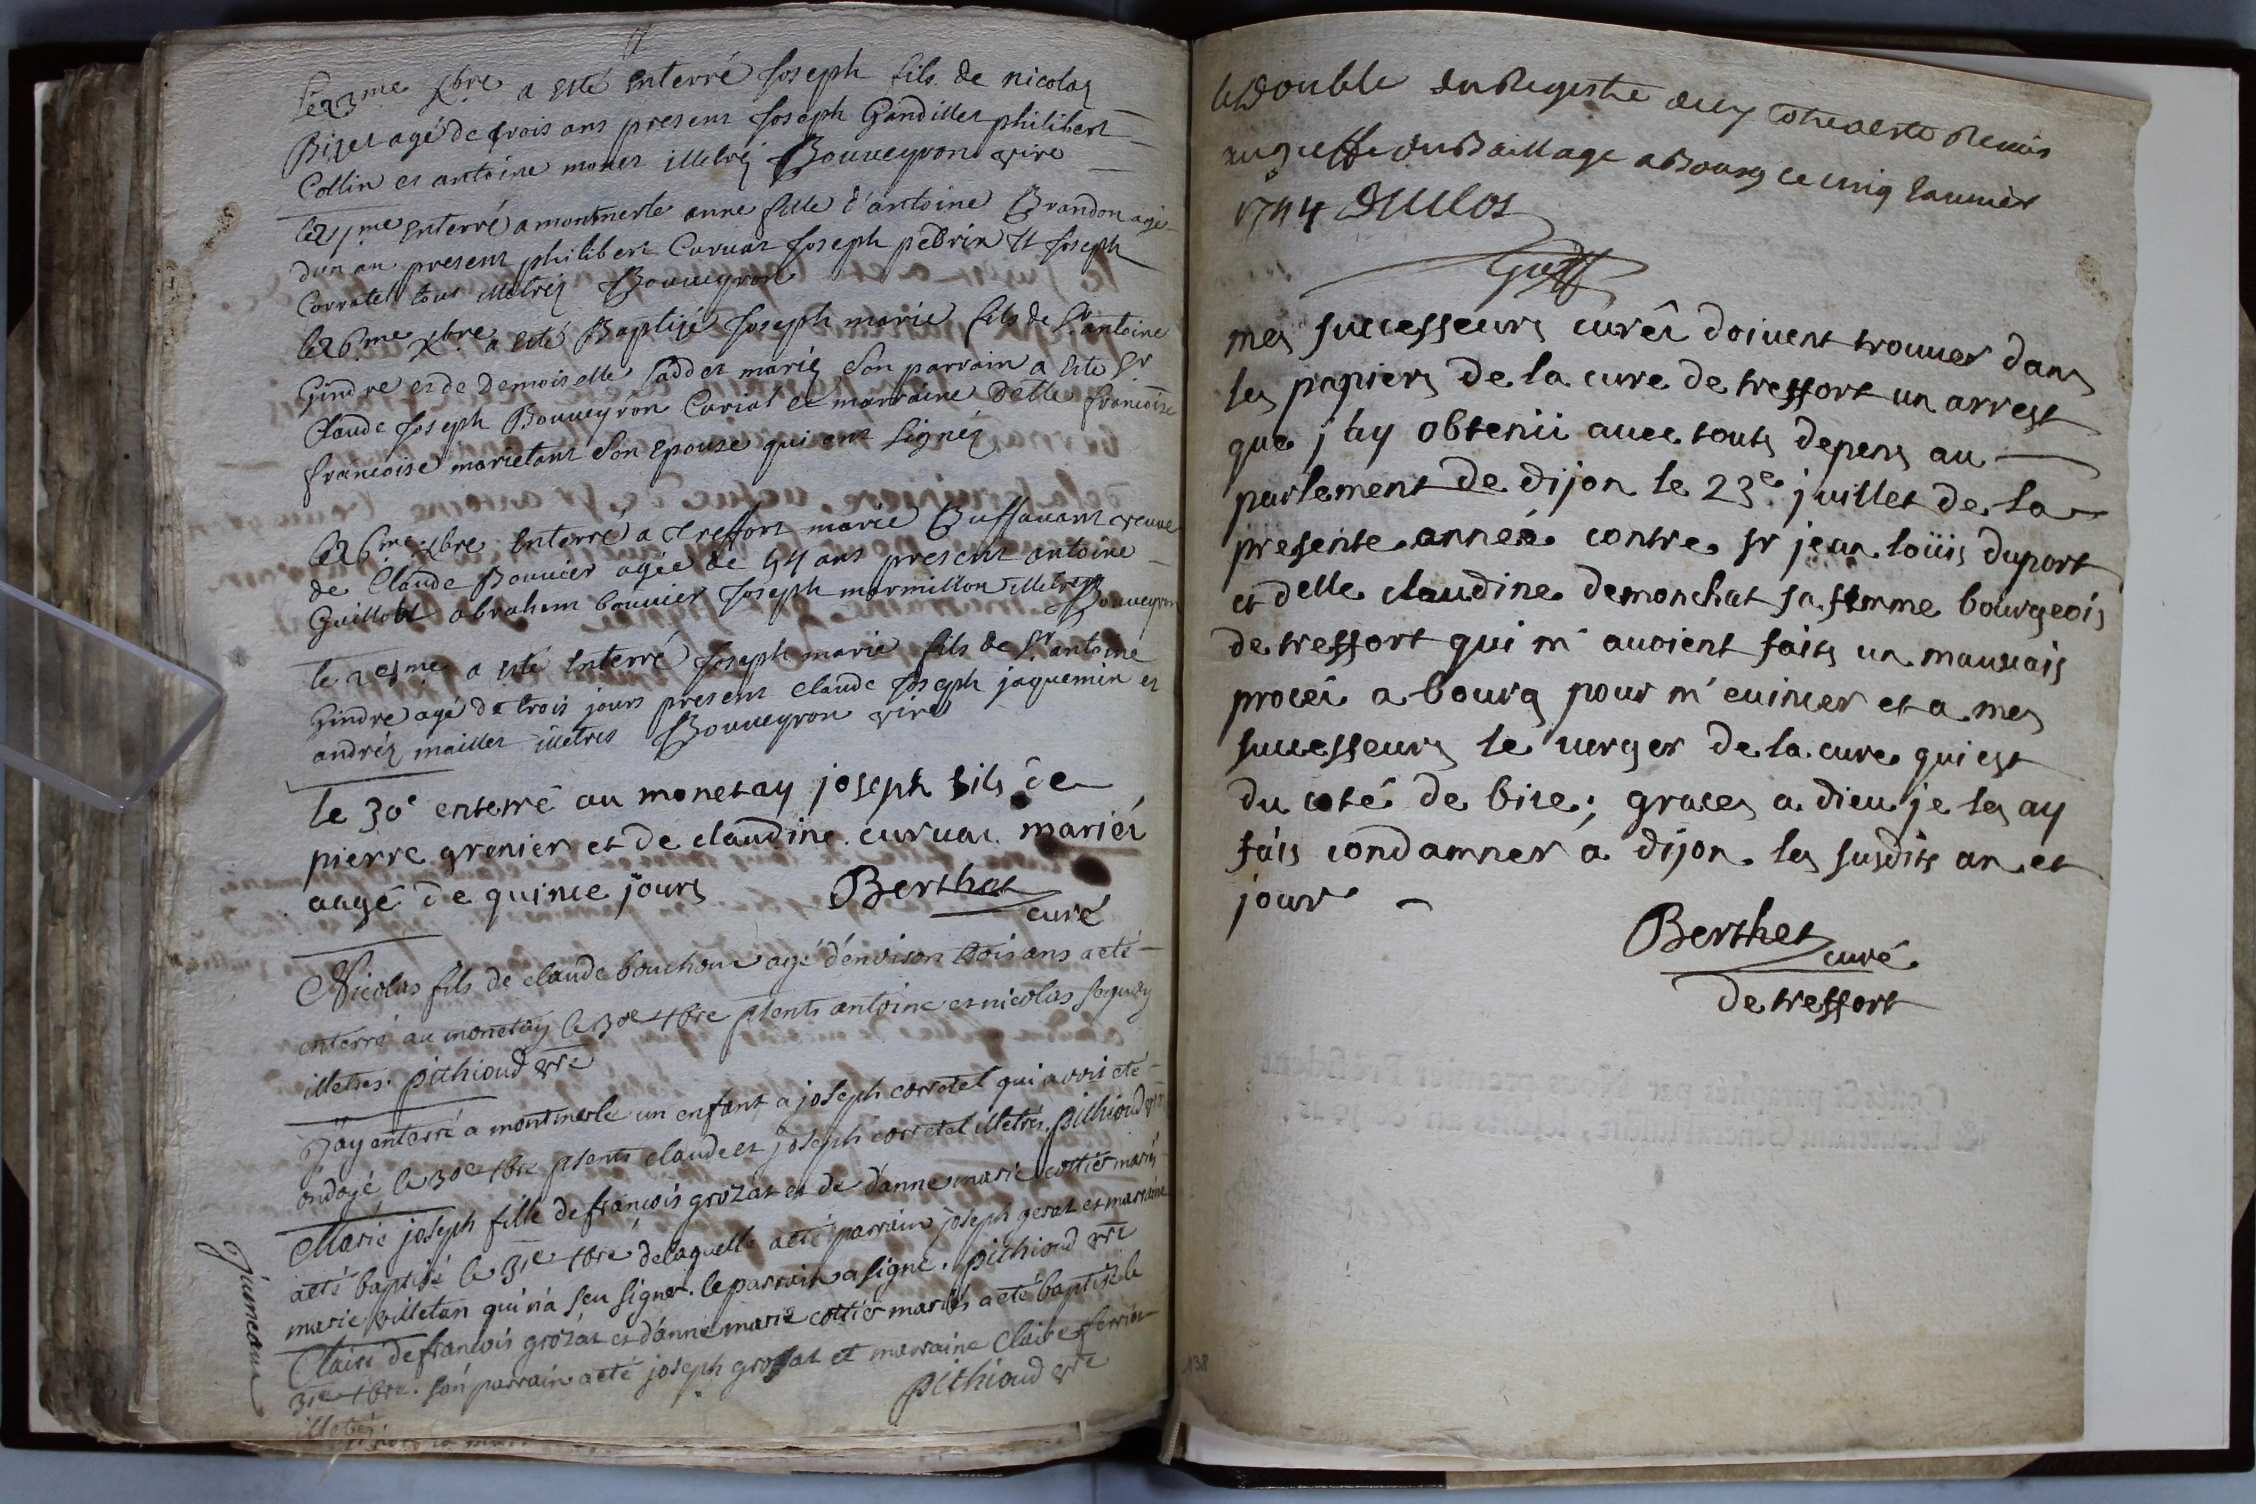 le 23me Xbre a esté enterré joseph fils de nicolas
Bizet agé de trois ans present joseph Gandillet philibert
Collin et antoine monet illetrés Bouveyron vire
le 25me enterré a montmerle anne fille d'antoine Brandon agé
dun an present philibert Curvat joseph pebrin et joseph
Corratel tous illetrés Bouveyron
le 26me Xbre a esté Baptisé joseph marie fils de Sr antoine
Gindre et de Demoiselle laddet mariés son parrain a esté Sr
Claude joseph Bouveyron Curial et marraine Delle francoise
francoise marietant son epouse qui ont signés
le 26me Xbre enterré a treffort marie Buffavant veuve
de Claude Bouvier agée de 54 ans present antoine
Guillot abraham bouvier joseph marmillon illetrés Bouveyron
le 29me a esté enterré joseph marie fils de Sr antoine
Gindre agé de trois jours present claude joseph jaquemin et
andrés maillet illetres Bouveyron vire
le 30e enterré au monetay joseph fils de
pierre grenier et de claudine curvat mariés
aagé de quince jours Berthet
curé
Nicolas fils de claude bouchoux agé d'environ trois ans a eté
enterré au monetay le 30e xbre psents antoine et nicolas
illetres. pithioud vre
J'ay enterré a montmerle un enfant a joseph corretel qui avoit eté
ondoyé le 30e xbre psents claude et joseph corretel illetrés. pithioud vre
Marie joseph fille de françois grozat et de d'anne marie cottier mariés
a eté baptisé le 31e xbre de laquelle a eté parrain joseph gerat et marraine
marie villetan qui n'a seu signer. le parrain a signé. pithioud vre
Jumeaux
Claire de françois grozat et d'anne marie cottier mariés a eté baptisé le
31e xbre. son parrain a eté joseph grossat et marraine Claire ferrier
illetrés. pithioud vre
le Double du Registre a esté Remis
au greffe du Baillage a Bourg ce cinq Januier
1744
Greff
mes successeurs curés doivent trouver dans
les papiers de la cure de treffort un arrest
que j'ay obtenü avec touts depens au
parlement de dijon le 23e juillet de la
presente anneé contre sr jean loüis duport
et delle claudine demonchat sa femme bourgeois
de treffort qui m'avoient faits un mauvais
procés a bourg pour m'evincer et a mes
successeurs le verger de la cure qui est
du coté de bise; graces a dieu je les ay
fais condamner a dijon les susdits an et
jour
Berthet
curé
de treffort
138